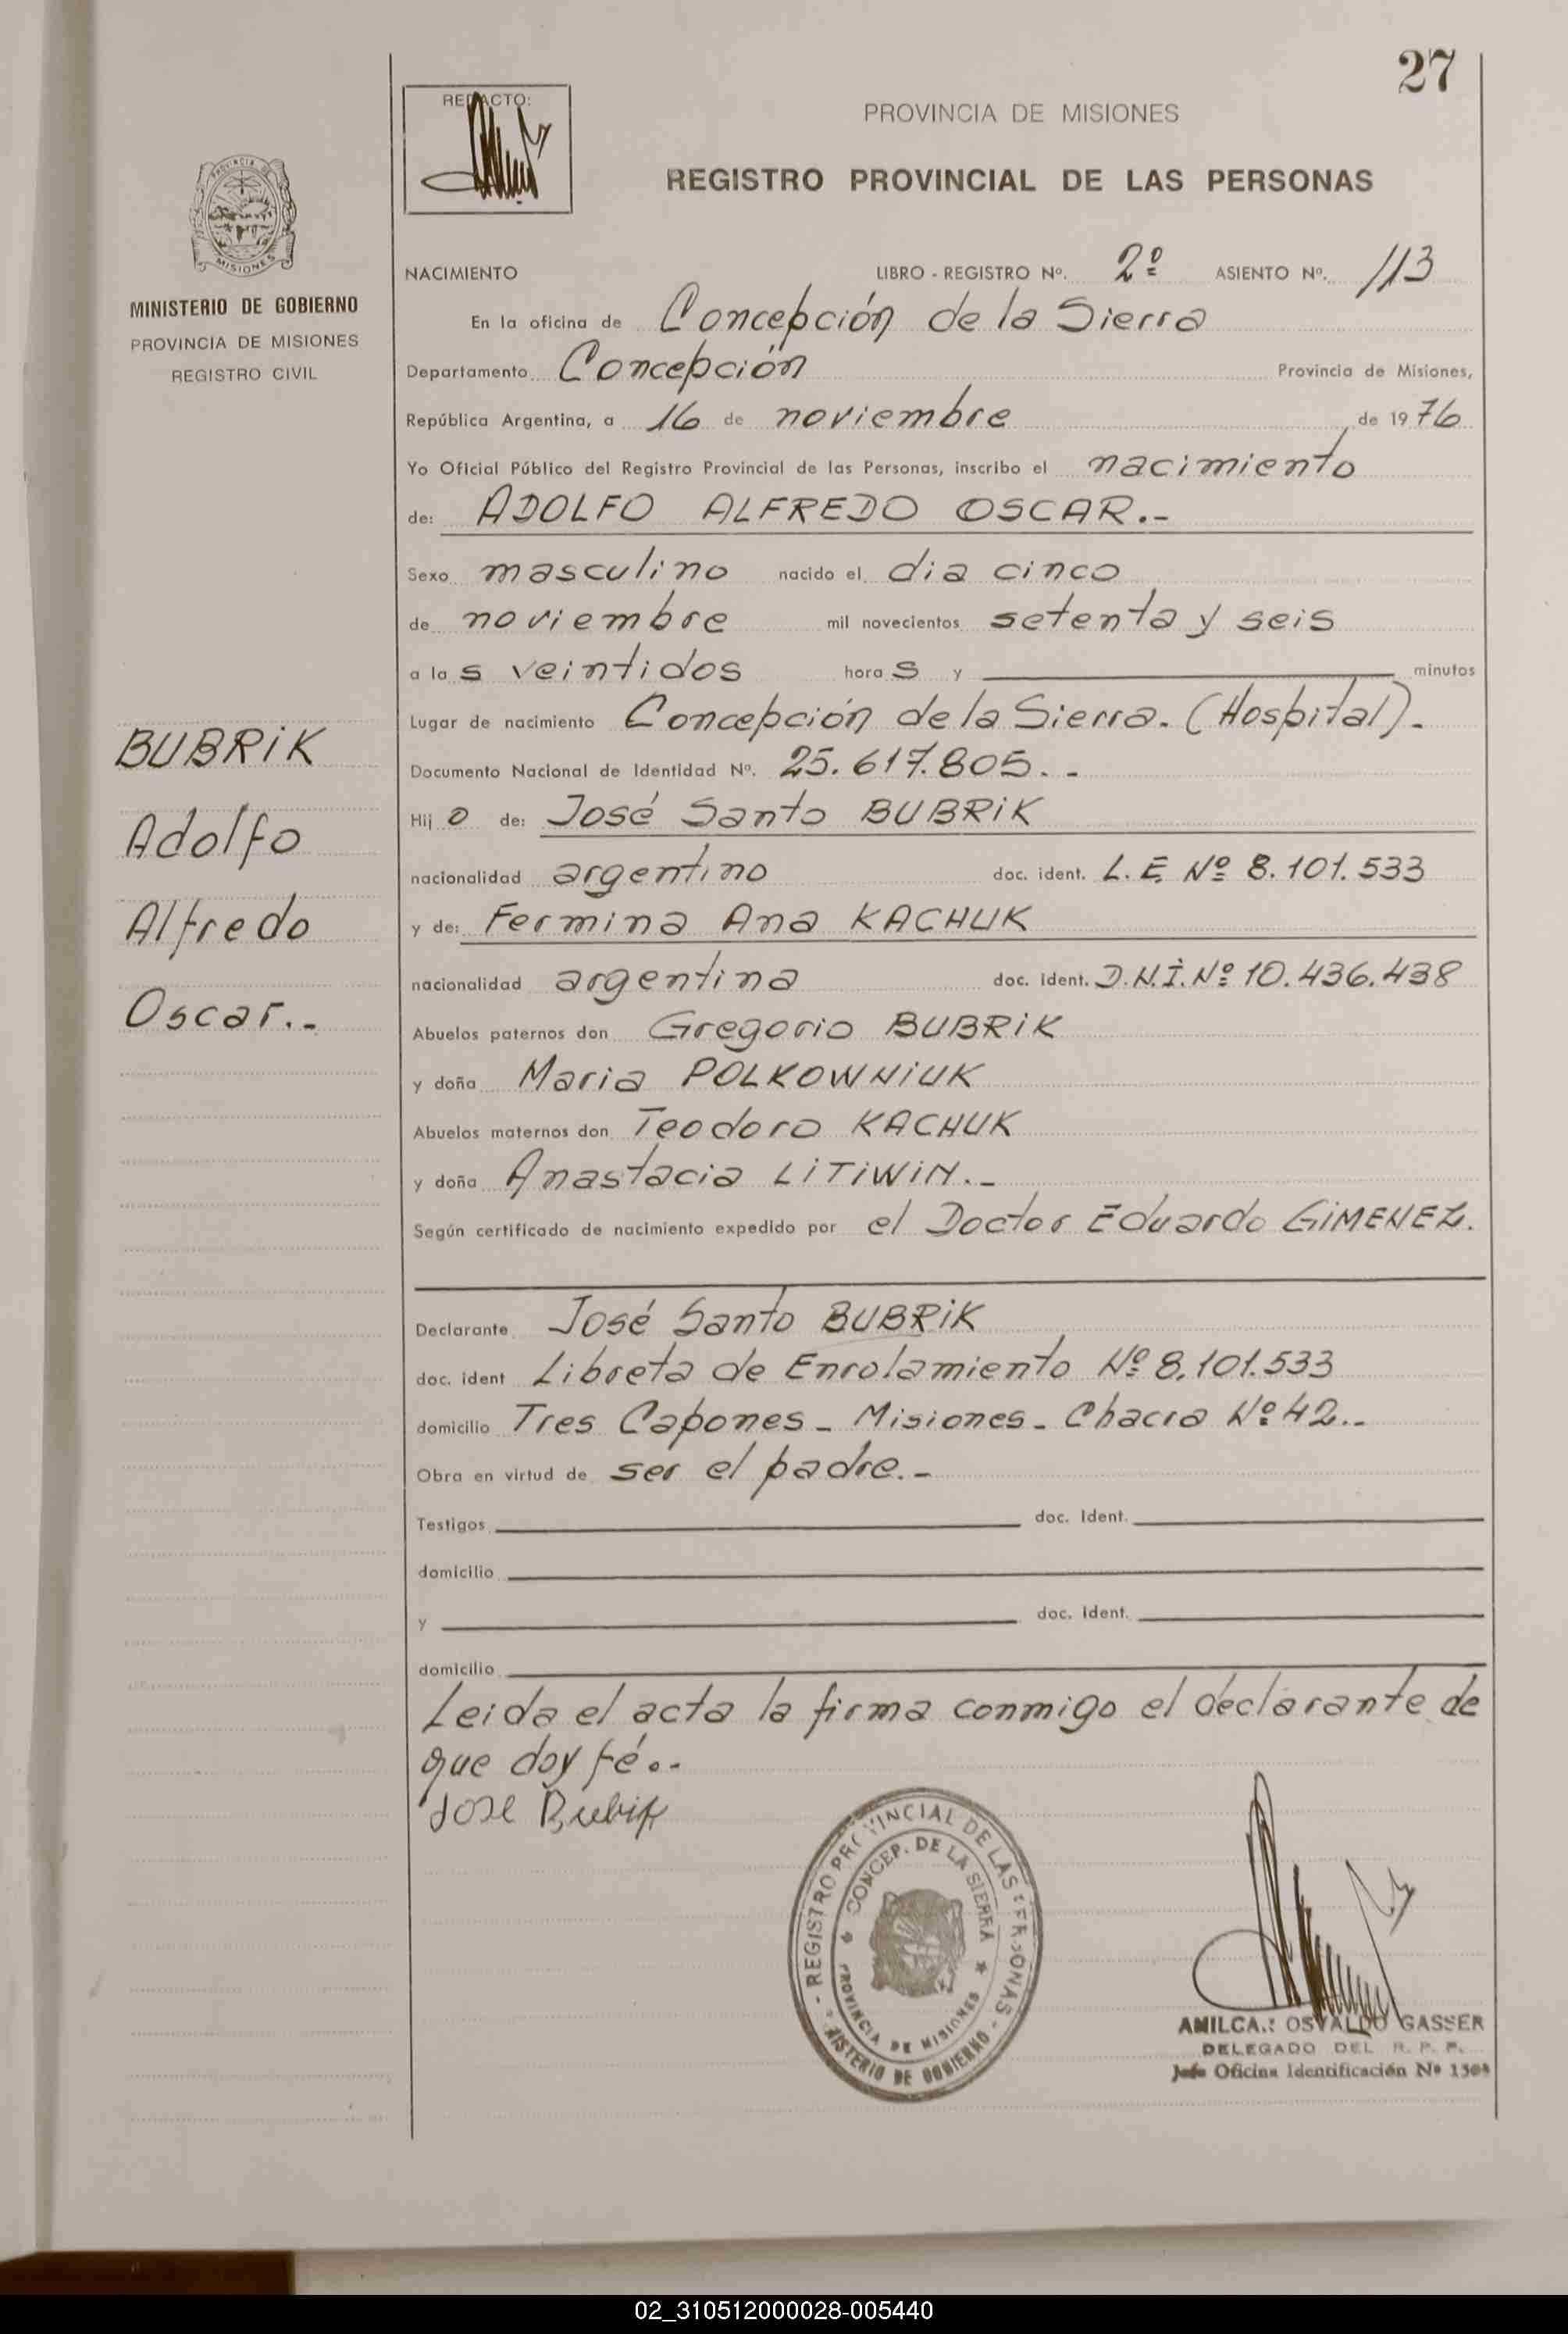 27
REDACTO:
PROVINCIA DE MISIONES
REGISTRO PROVINCIAL DE LAS PERSONAS
PROVINCIA DE
MISIONES
MINISTERIO DE GOBIERNO
PROVINCIA DE MISIONES
REGISTRO CIVIL
NACIMIENTO LIBRO - REGISTRO Nº. 2º ASIENTO Nº. 113
En la oficina de Concepción de la Sierra
Departamento Concepción Provincia de Misiones,
República Argentina, a 16 de noviembre de 1976
Yo Oficial Público del Registro Provincial de las Personas, inscribo el nacimiento
de: ADOLFO ALFREDO OSCAR.-
Sexo masculino nacido el dia cinco
de noviembre mil novecientos setenta y seis
a las veintidos horas y minutos
Lugar de nacimiento Concepción de la Sierra. (Hospital).-
Documento Nacional de Identidad Nº. 25.617.805.-
Hijo de: José Santo BUBRiK
nacionalidad argentino doc. ident. L.E. Nº 8.101.533
y de: Fermina Ana KACHUK
nacionalidad argentina doc. ident. D.N.I. Nº 10.436.438
Abuelos paternos don Gregorio BUBRiK
y doña Maria POLKOWNiUK
Abuelos maternos don Teodoro KACHUK
y doña Anastacia LiTiWiN.-
Según certificado de nacimiento expedido por el Doctor Eduardo GiMENEZ.
BUBRiK
Adolfo
Alfredo
Oscar.-
Declarante José Santo BUBRiK
doc. ident Libreta de Enrolamiento Nº 8.101.533
domicilio Tres Capones - Misiones - Chacra Nº 42.-
Obra en virtud de ser el padre.-
Testigos doc. Ident.
domicilio
y doc. Ident.
domicilio
Leida el acta la firma conmigo el declarante de
que doy fé.-
José Bubrik
- REGISTRO PROVINCIAL DE LAS PERSONAS -
CONCEP. DE LA SIERRA
PROVINCIA DE MISIONES
MINISTERIO DE GOBIERNO
AMILCA.: OSVALDO GASSER
DELEGADO DEL R. P. P.
Jefe Oficina Identificación Nº
02_310512000028-005440